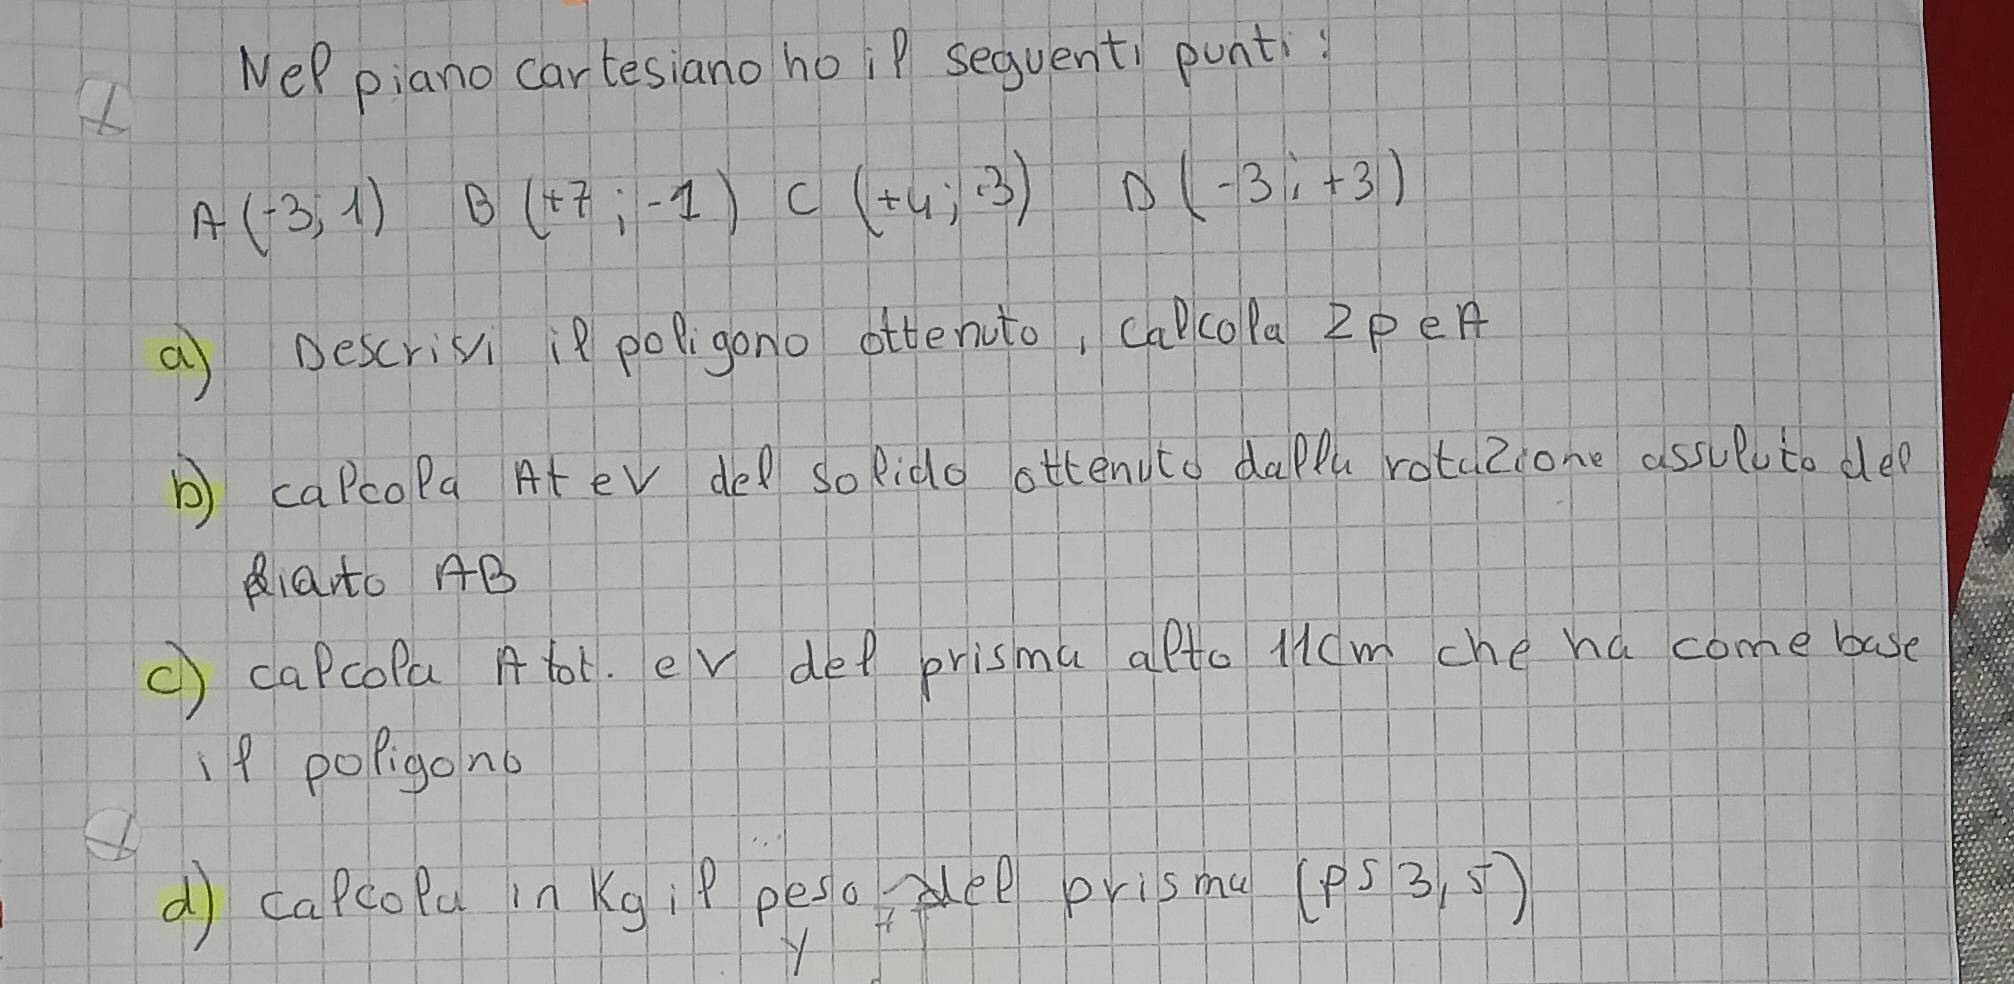 Nel piano cartesiano ho il seguenti punti:
A (-3; 1) B (+7; -1) C (+4; -3) D (-3; +3)
a) Descrivi il poligono ottenuto, calcola 2p e A
b) calcola At e V del solido ottenuto dalla rotazione assuluto del
liarto AB
c) calcola A tot. e V del prisma alto 11cm che ha come base
il poligono
d) calcola in Kg il peso del prisma (PS 3,5)